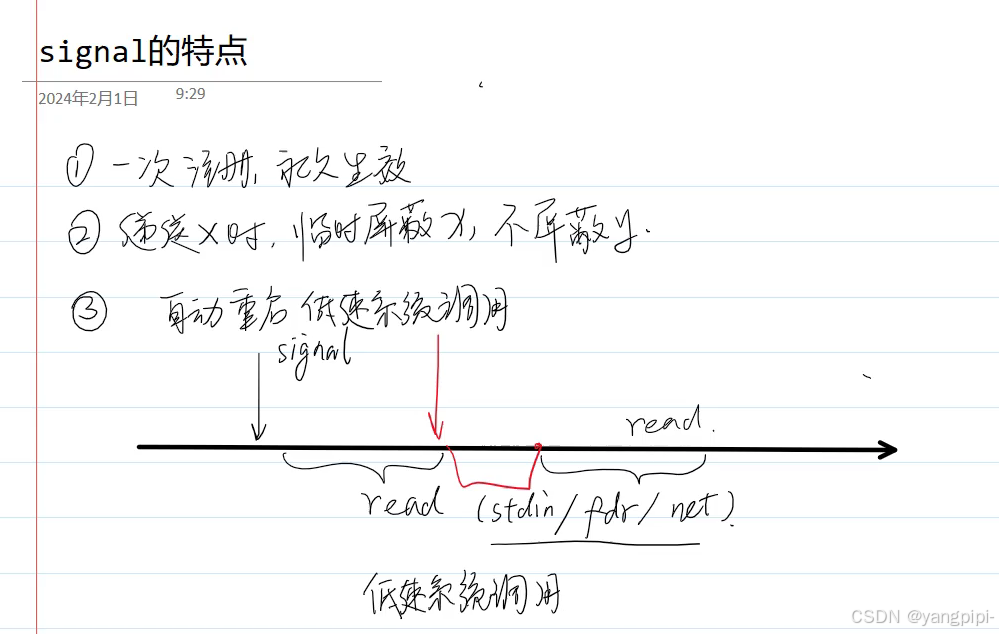 signal的特点
2024年2月1日 9:29
① 一次注册, 永久生效
② 递送x时, 临时屏蔽x, 不屏蔽y.
③ 自动重启低速系统调用
signal
read.
read (stdin/fdr/net).
低速系统调用
CSDN @yangpipi-